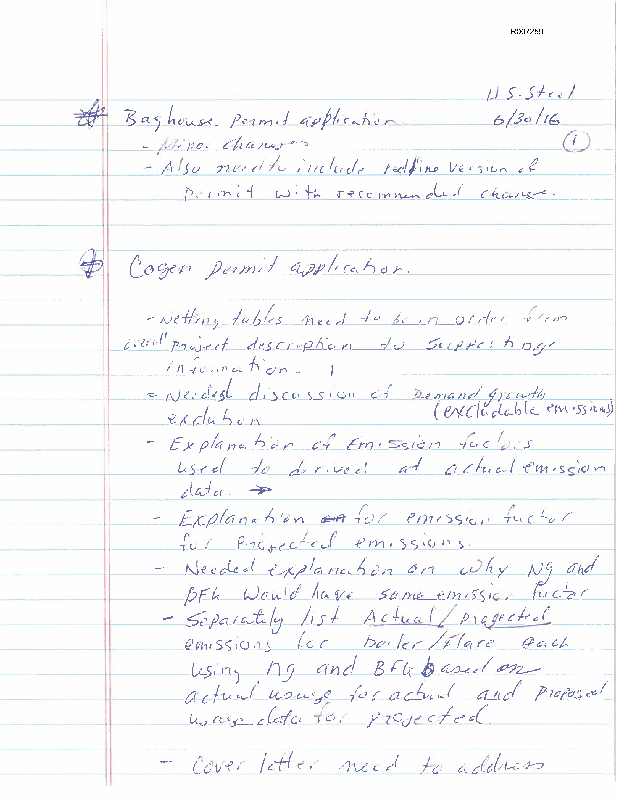 R007259
U.S. Steel
6/30/16
1
Baghouse Permit application
- Minor changes
- Also need to include redline version of
permit with recommended change.
Cogen permit application.
- Netting tables need to be in order from
project description to supporting
information.
- Needed discussion of Demand growth
exclution (excludable emissions)
- Explanation of Emission factors
used to derived at actual emission
data. →
- Explanation for emission factor
for Projected emissions.
- Needed explanation on why NG and
BFG would have same emission factor
- Separately list Actual/projected
emissions for boiler/flare each
using NG and BFG based on
actual usage for actual and proposed
usage data for projected.
- Cover letter need to address